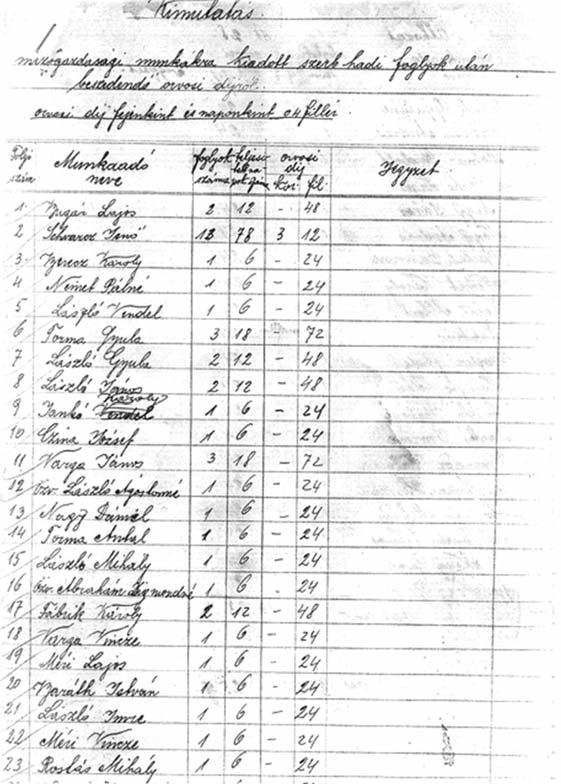 Kimutatás.
mezőgazdasági munkákra kiadott szerb hadi foglyok után
beszedendő orvosi díjról.
orvosi díj fejenkint és naponkint 04 fillér.
Folyó szám Munkaadó neve foglyok száma teljesített napok száma orvosi díj kor. fil. Jegyzet
1 Lajos 2 12 - 48
2 Schvarcz Jenő 13 78 3 12
3 Károly 1 6 - 24
4 Német Pálné 1 6 - 24
5 László Vendel 1 6 - 24
6 Torma Gyula 3 18 - 72
7 László Gyula 2 12 - 48
8 László János 2 12 - 48
Károly
9 Jankó Vendel 1 6 - 24
10 Czina József 1 6 - 24
11 Varga János 3 18 - 72
12 Özv. László Ágostonné 1 6 - 24
13 Nagy Dániel 1 6 - 24
14 Torma Antal 1 6 - 24
15 László Mihály 1 6 - 24
16 Özv. Abrahám Zsigmondné 1 6 - 24
17 Fábrik Károly 2 12 - 48
18 Varga Vincze 1 6 - 24
19 Méri Lajos 1 6 - 24
20 Baráth István 1 6 - 24
21 László Imre 1 6 - 24
22 Méri Vincze 1 6 - 24
23 Rostás Mihály 1 6 - 24